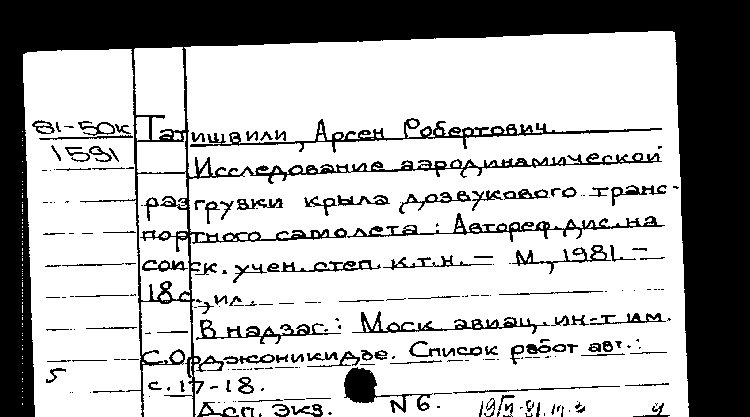 81-50к Татишвили, Арсен Робертович.
1591 Исследование аэродинамической
разгрузки крыла дозвукового транс-
портного самолета : Автореф. дис. на
соиск. учен. степ. к.т.н. – М., 1981. –
18 с., ил.
В надзаг.: Моск авиац. ин-т им.
С. Орджоникидзе. Список работ авт.:
5 с. 17-18.
Асп. экз. N 6.